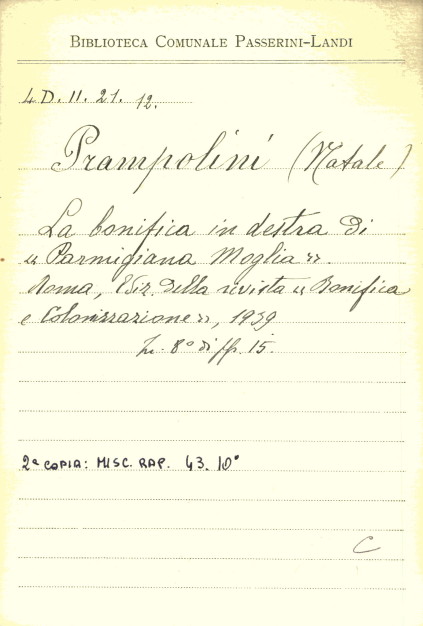 BIBLIOTECA COMUNALE PASSERINI-LANDI
4 D. II. 21. 12.
Prampolini (Natale)
La bonifica in destra di
« Parmigiana Moglia ».
Roma, Ediz. della rivista « Bonifica
e Colonizzazione », 1939
In-8° di pp. 15.
2ª COPIA: MISC. RAP. 43. 10°
C